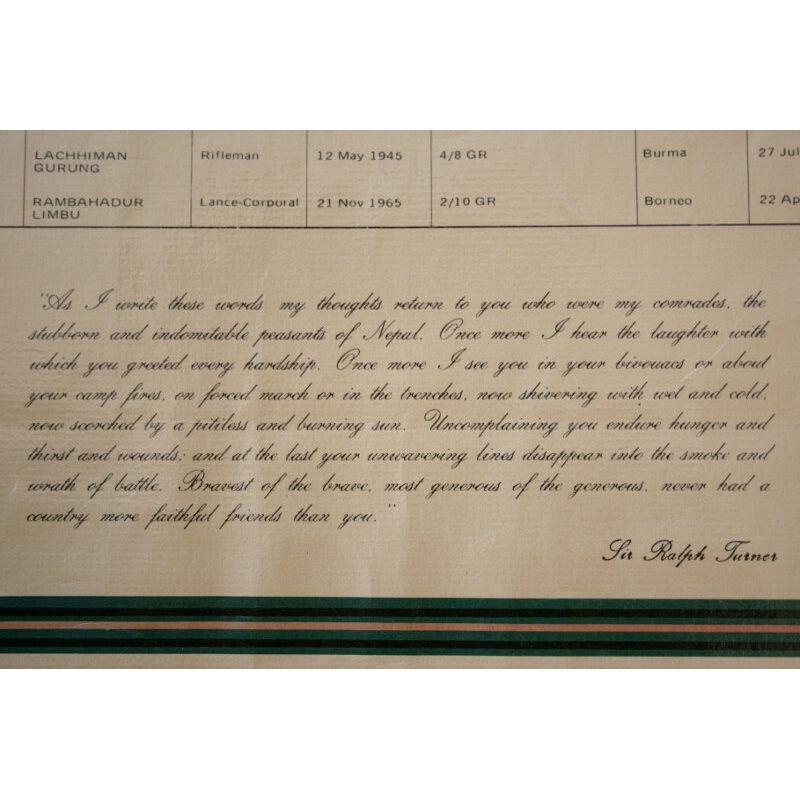 LACHHIMAN GURUNG Rifleman 12 May 1945 4/8 GR Burma 27 Jul
RAMBAHADUR LIMBU Lance-Corporal 21 Nov 1965 2/10 GR Borneo 22 Ap
"As I write these words my thoughts return to you who were my comrades, the
stubborn and indomitable peasants of Nepal. Once more I hear the laughter with
which you greeted every hardship. Once more I see you in your bivouacs or about
your camp fires, on forced march or in the trenches, now shivering with wet and cold,
now scorched by a pitiless and burning sun. Uncomplaining you endure hunger and
thirst and wounds; and at the last your unwavering lines disappear into the smoke and
wrath of battle. Bravest of the brave, most generous of the generous, never had a
country more faithful friends than you."
Sir Ralph Turner